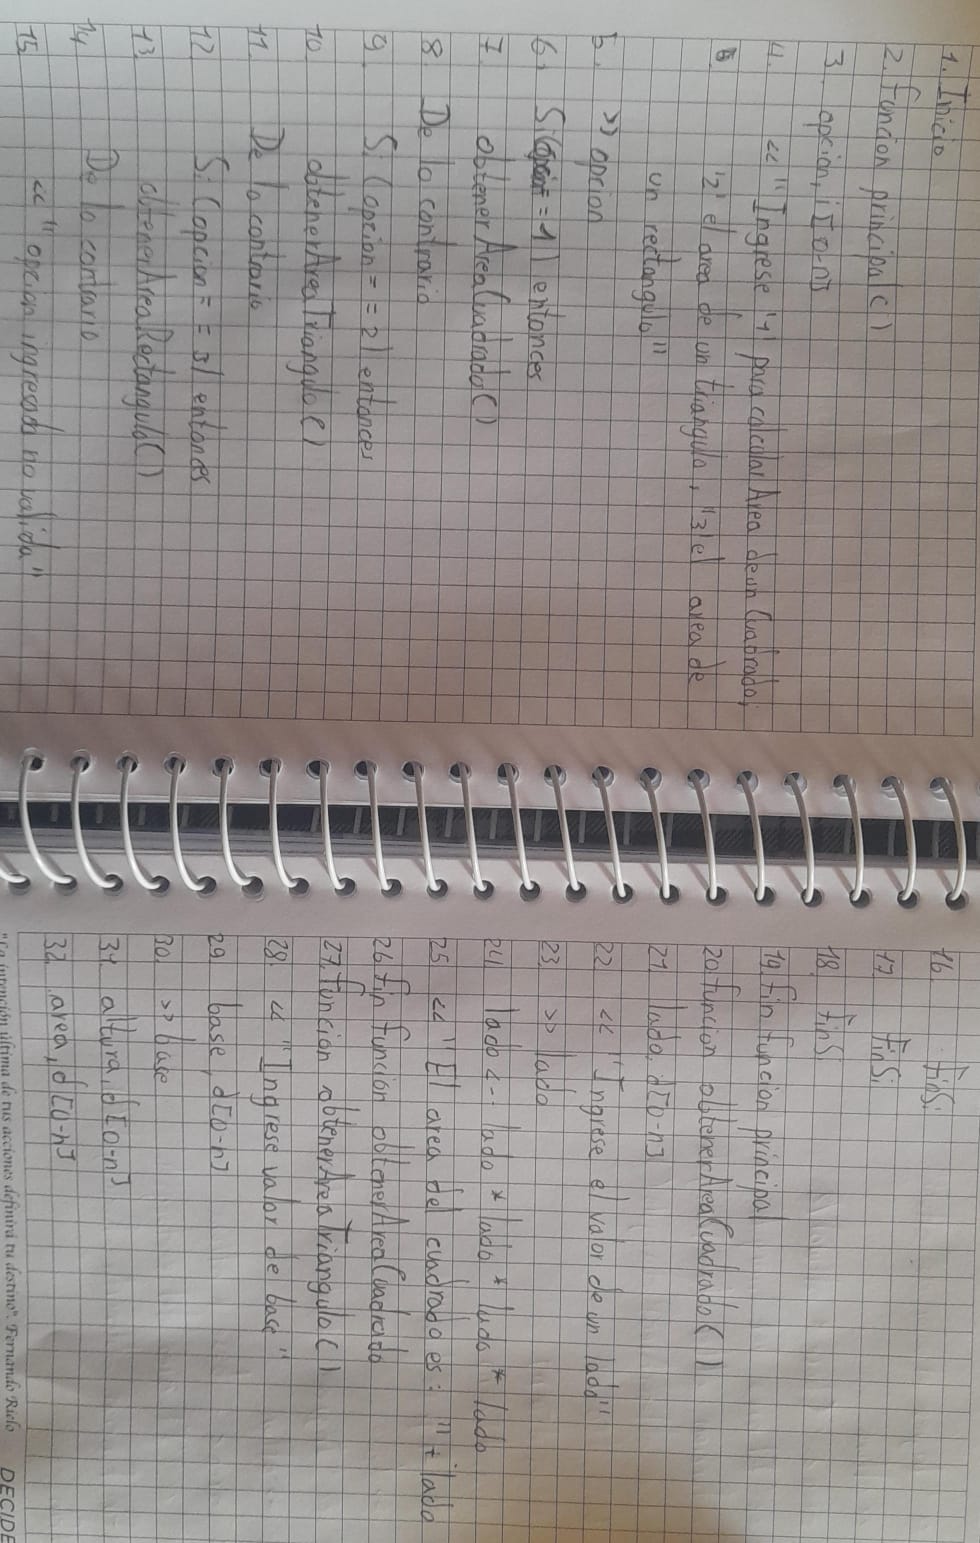 1. Inicio
2. funcion principal()
3. opcion, i [0-n]
4. << "Ingrese '1' para calcular Area de un Cuadrado,
'2' el area de un triangulo, "3" el area de
un rectangulo"
5. >> opcion
6. Si(opcion==1) entonces
7. obtenerAreaCuadrado()
8. De lo contrario
9. Si (opcion == 2) entonces
10. obtenerAreaTriangulo()
11. De lo contrario
12. Si (opcion == 3) entonces
13. obtenerAreaRectangulo()
14. De lo contario
15. << "opcion ingresada no valida"
16. finSi
17. finSi
18. finSi
19. fin funcion principal
20 funcion obtenerAreaCuadrado()
21 lado, d[0-n]
22 << "Ingrese el valor de un lado"
23. >> lado
24. lado <-- lado * lado * lado * lado
25 << "El area del cuadrado es: " + lado
26 fin funcion obtenerAreaCuadrado
27. funcion obtenerAreaTriangulo()
28. << "Ingrese valor de base"
29 base, d[0-n]
30. >> base
31. altura, d[0-n]
32. area, d[0-n]
"La intención última de tus acciones definirá tu destino". Fernando Rielo
DECIDE